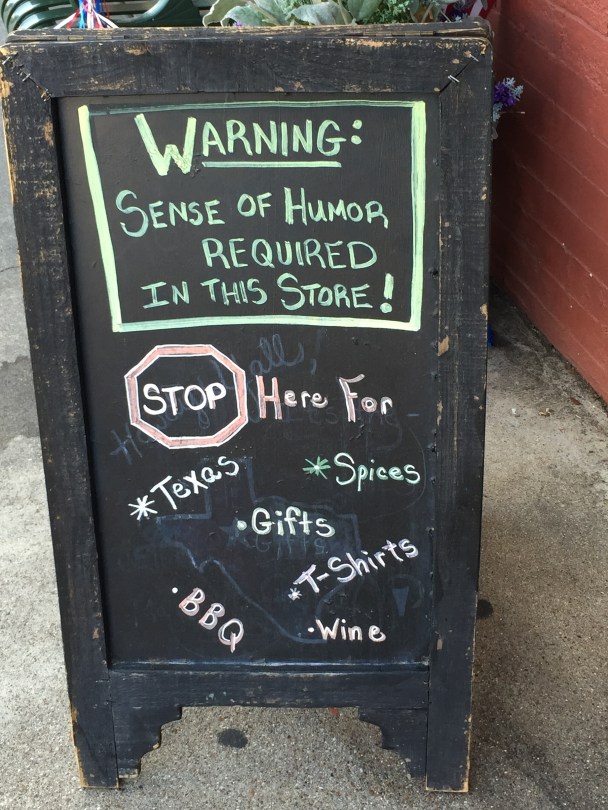 WARNING:
SENSE OF HUMOR
REQUIRED
IN THIS STORE!
STOP Here For
* Texas
* Spices
• Gifts
* T-Shirts
• BBQ
• Wine